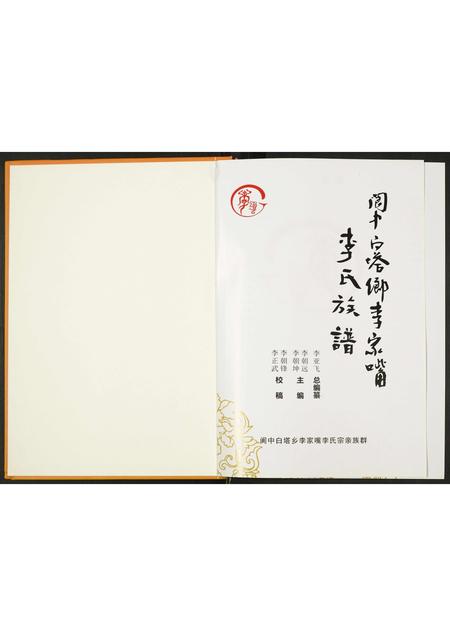 阆中白塔鄉李家嘴
李氏族譜
李亚飞 总编纂
李朝远
李朝坤 主编
李朝锋
李正武 校稿
阆中白塔乡李家嘴李氏宗亲族群